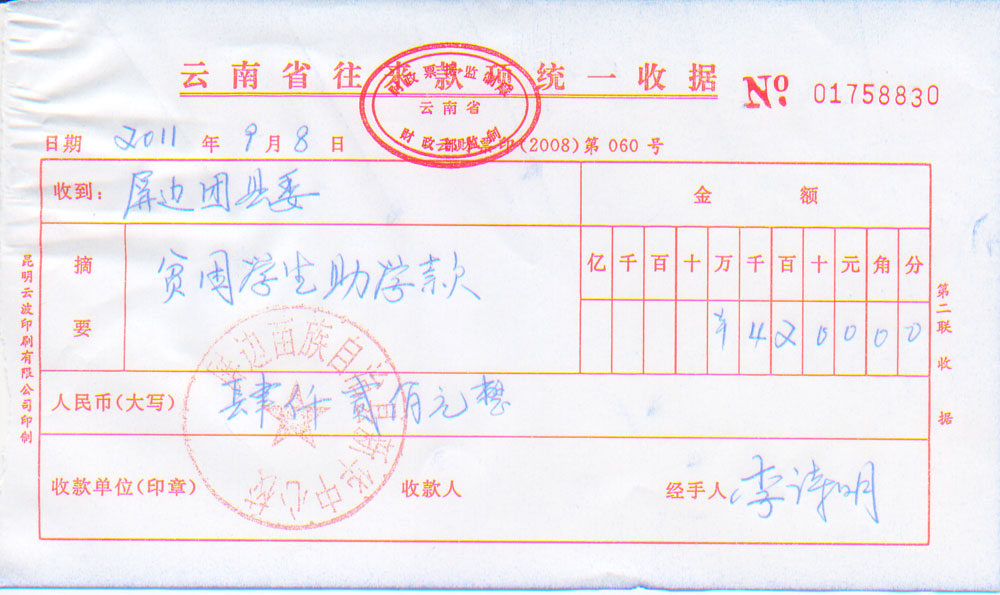 云南省往来款项统一收据
No. 01758830
财政票据监制章
云南省
财政部监制
日期 2011 年 9 月 8 日
(2008)第 060 号
收到: 屏边团县委
金 额
摘要
贫困学生助学款
亿 千 百 十 万 千 百 十 元 角 分
¥ 4 2 0 0 0 0
人民币(大写) 肆仟贰佰元整
收款单位(印章)
收款人
经手人 李诗明
屏边苗族自治县新华中心校
昆明云波印刷有限公司印制
第二联 收据